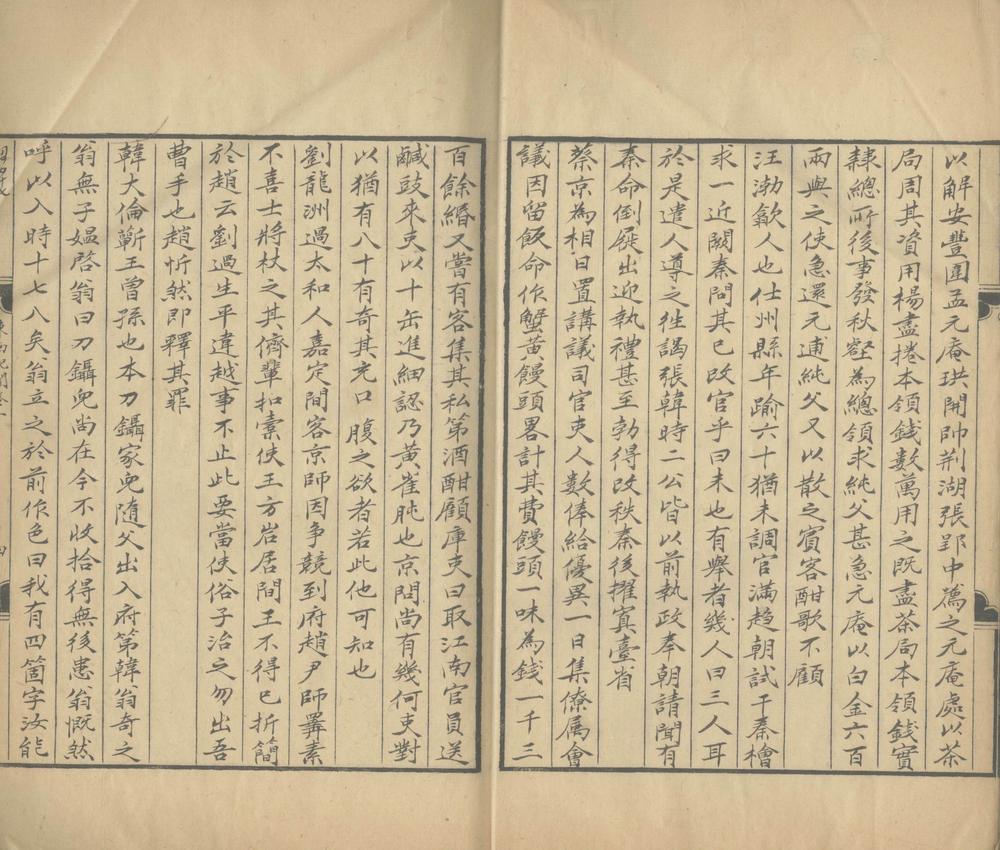 以解安豐圍孟元庵珙開帥荆湖張郢中薦之元庵處以茶
局周其資用楊盡捲本領錢數萬用之既盡茶局本領錢實
隸總所後事發秋壑為總領求純父甚急元庵以白金六百
兩與之使急還元逋純父又以散之賓客酣歌不顧
汪渤歙人也仕州縣年踰六十猶未調官滿趨朝試干秦檜
求一近闕秦問其已改官乎曰未也有舉者幾人曰三人耳
於是遣人導之徃謁張韓時二公皆以前執政奉朝請聞有
秦命倒屣出迎執禮甚至勃得改秩秦後擢寘臺省
蔡京為相日置講議司官吏人數俸給優異一日集僚属會
議因留飯命作蟹黄饅頭畧計其費饅頭一味為錢一千三
百餘緡又嘗有客集其私第酒酣顧庫吏曰取江南官員送
鹹豉來吏以十缶進細認乃黄雀肫也京問尚有幾何吏對
以猶有八十有奇其充口腹之欲者若此他可知也
劉龍洲過太和人嘉定間客京師因争競到府趙尹師睪素
不喜士將杖之其儕輩扣素使王方岩居間王不得已折簡
於趙云劉過生平違越事不止此要當使俗子治之勿出吾
曹手也趙忻然即釋其罪
韓大倫蘄王曾孫也本刀鑷家兒随父出入府第韓翁奇之
翁無子媪啓翁曰刀鑷兒尚在今不收拾得無後患翁慨然
呼以入時十七八矣翁立之於前作色曰我有四箇字汝能
四